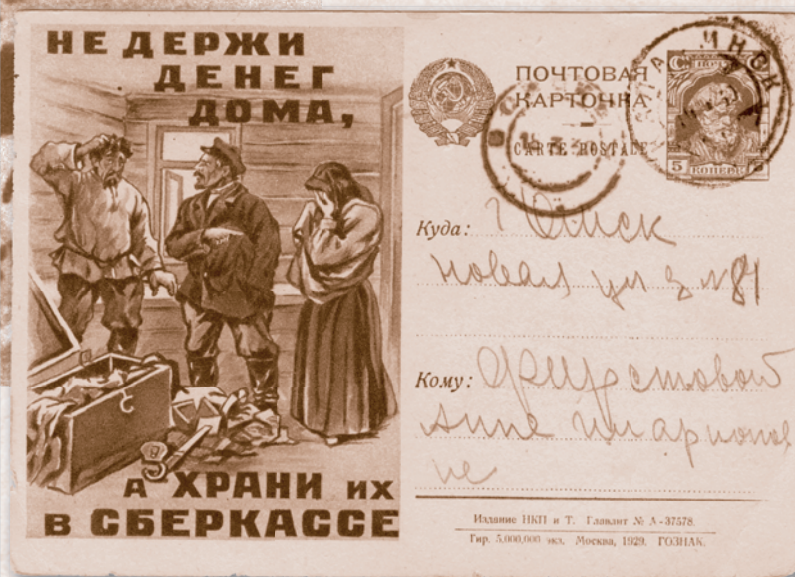 НЕ ДЕРЖИ
ДЕНЕГ
ДОМА,
А ХРАНИ ИХ
В СБЕРКАССЕ
ПОЧТОВАЯ
КАРТОЧКА
CARTE POSTALE
ПОЧТА
5 КОПЕЕК 5
ИНСК
Куда: г Омск
новая ул
Кому:
Анне
не
Издание НКП и Т. Главлит № А-37578.
Тир. 5,000,000 экз. Москва, 1929. ГОЗНАК.